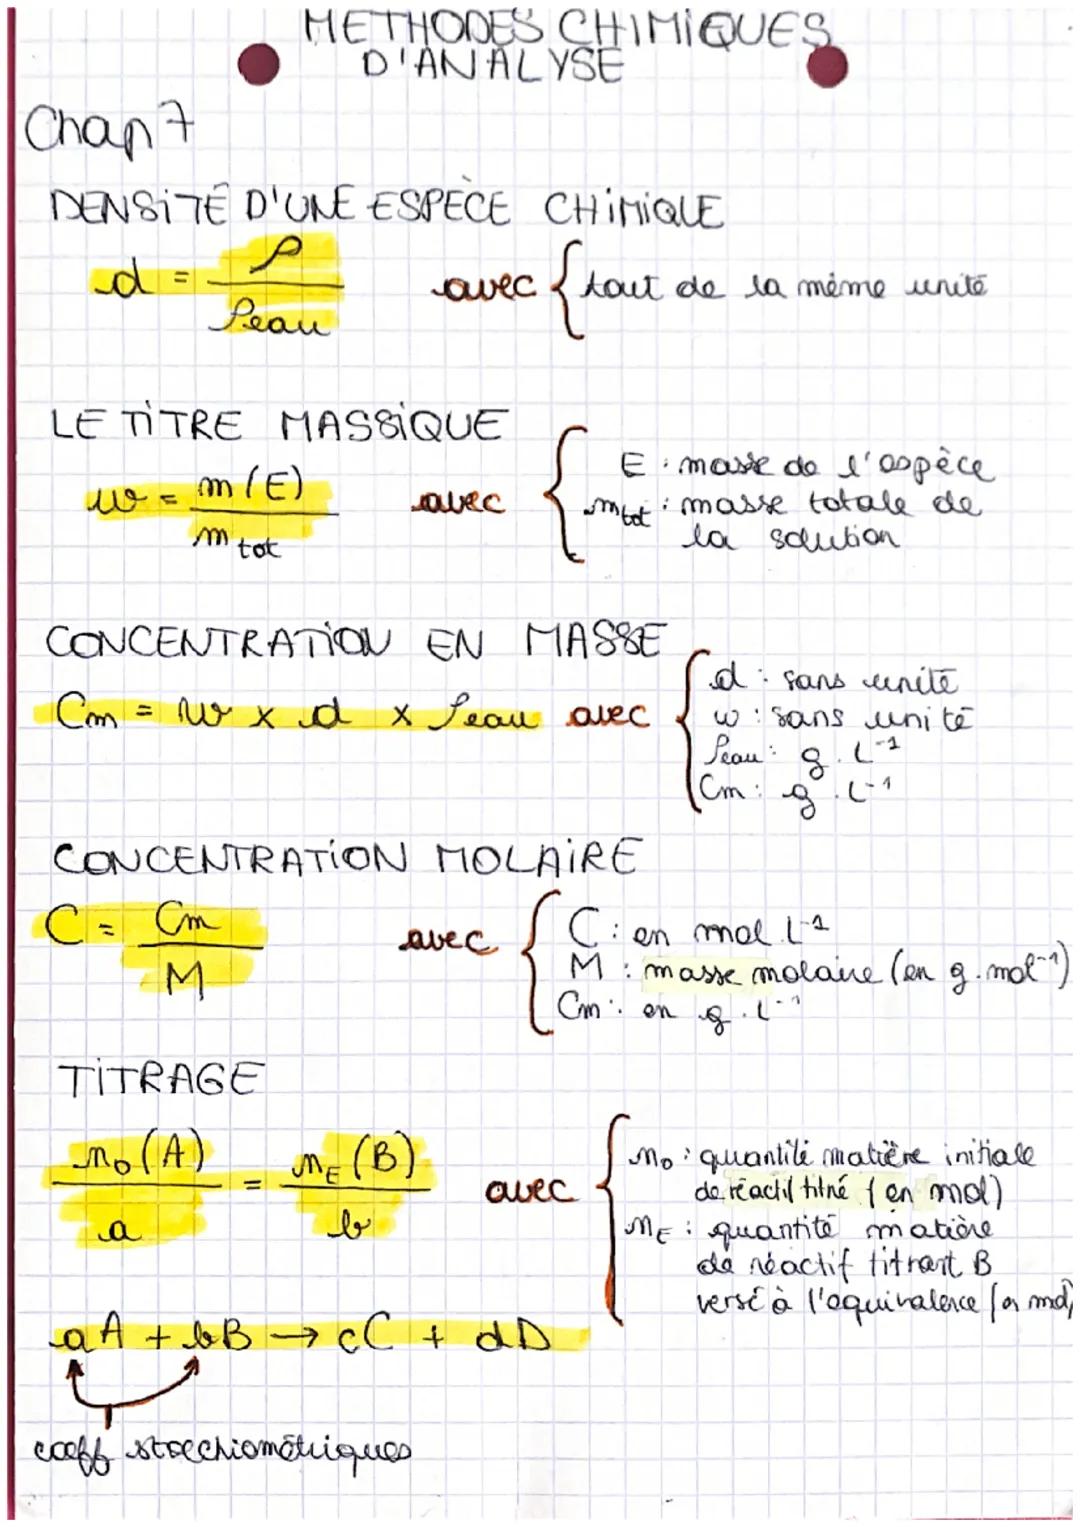 METHODES CHIMIQUES
D'ANALYSE
Chap 7
DENSITÉ D'UNE ESPÈCE CHIMIQUE
d = ρ / ρeau avec { tout de la même unité
LE TITRE MASSIQUE
w = m(E) / m tot avec { E : masse de l'espèce
mtot : masse totale de
la solution
CONCENTRATION EN MASSE
Cm = w x d x ρeau avec { d : sans unité
w : sans unité
ρeau : g.L-1
Cm : g.L-1
CONCENTRATION MOLAIRE
C = Cm / M avec { C : en mol.L-1
M : masse molaire (en g.mol-1)
Cm : en g.L-1
TITRAGE
n0(A) / a = nE(B) / b avec { n0 : quantité matière initiale
de réactif titré (en mol)
nE : quantité matière
de réactif titrant B
versé à l'equivalence (en mol)
aA + bB → cC + dD
coeff stoechiométriques